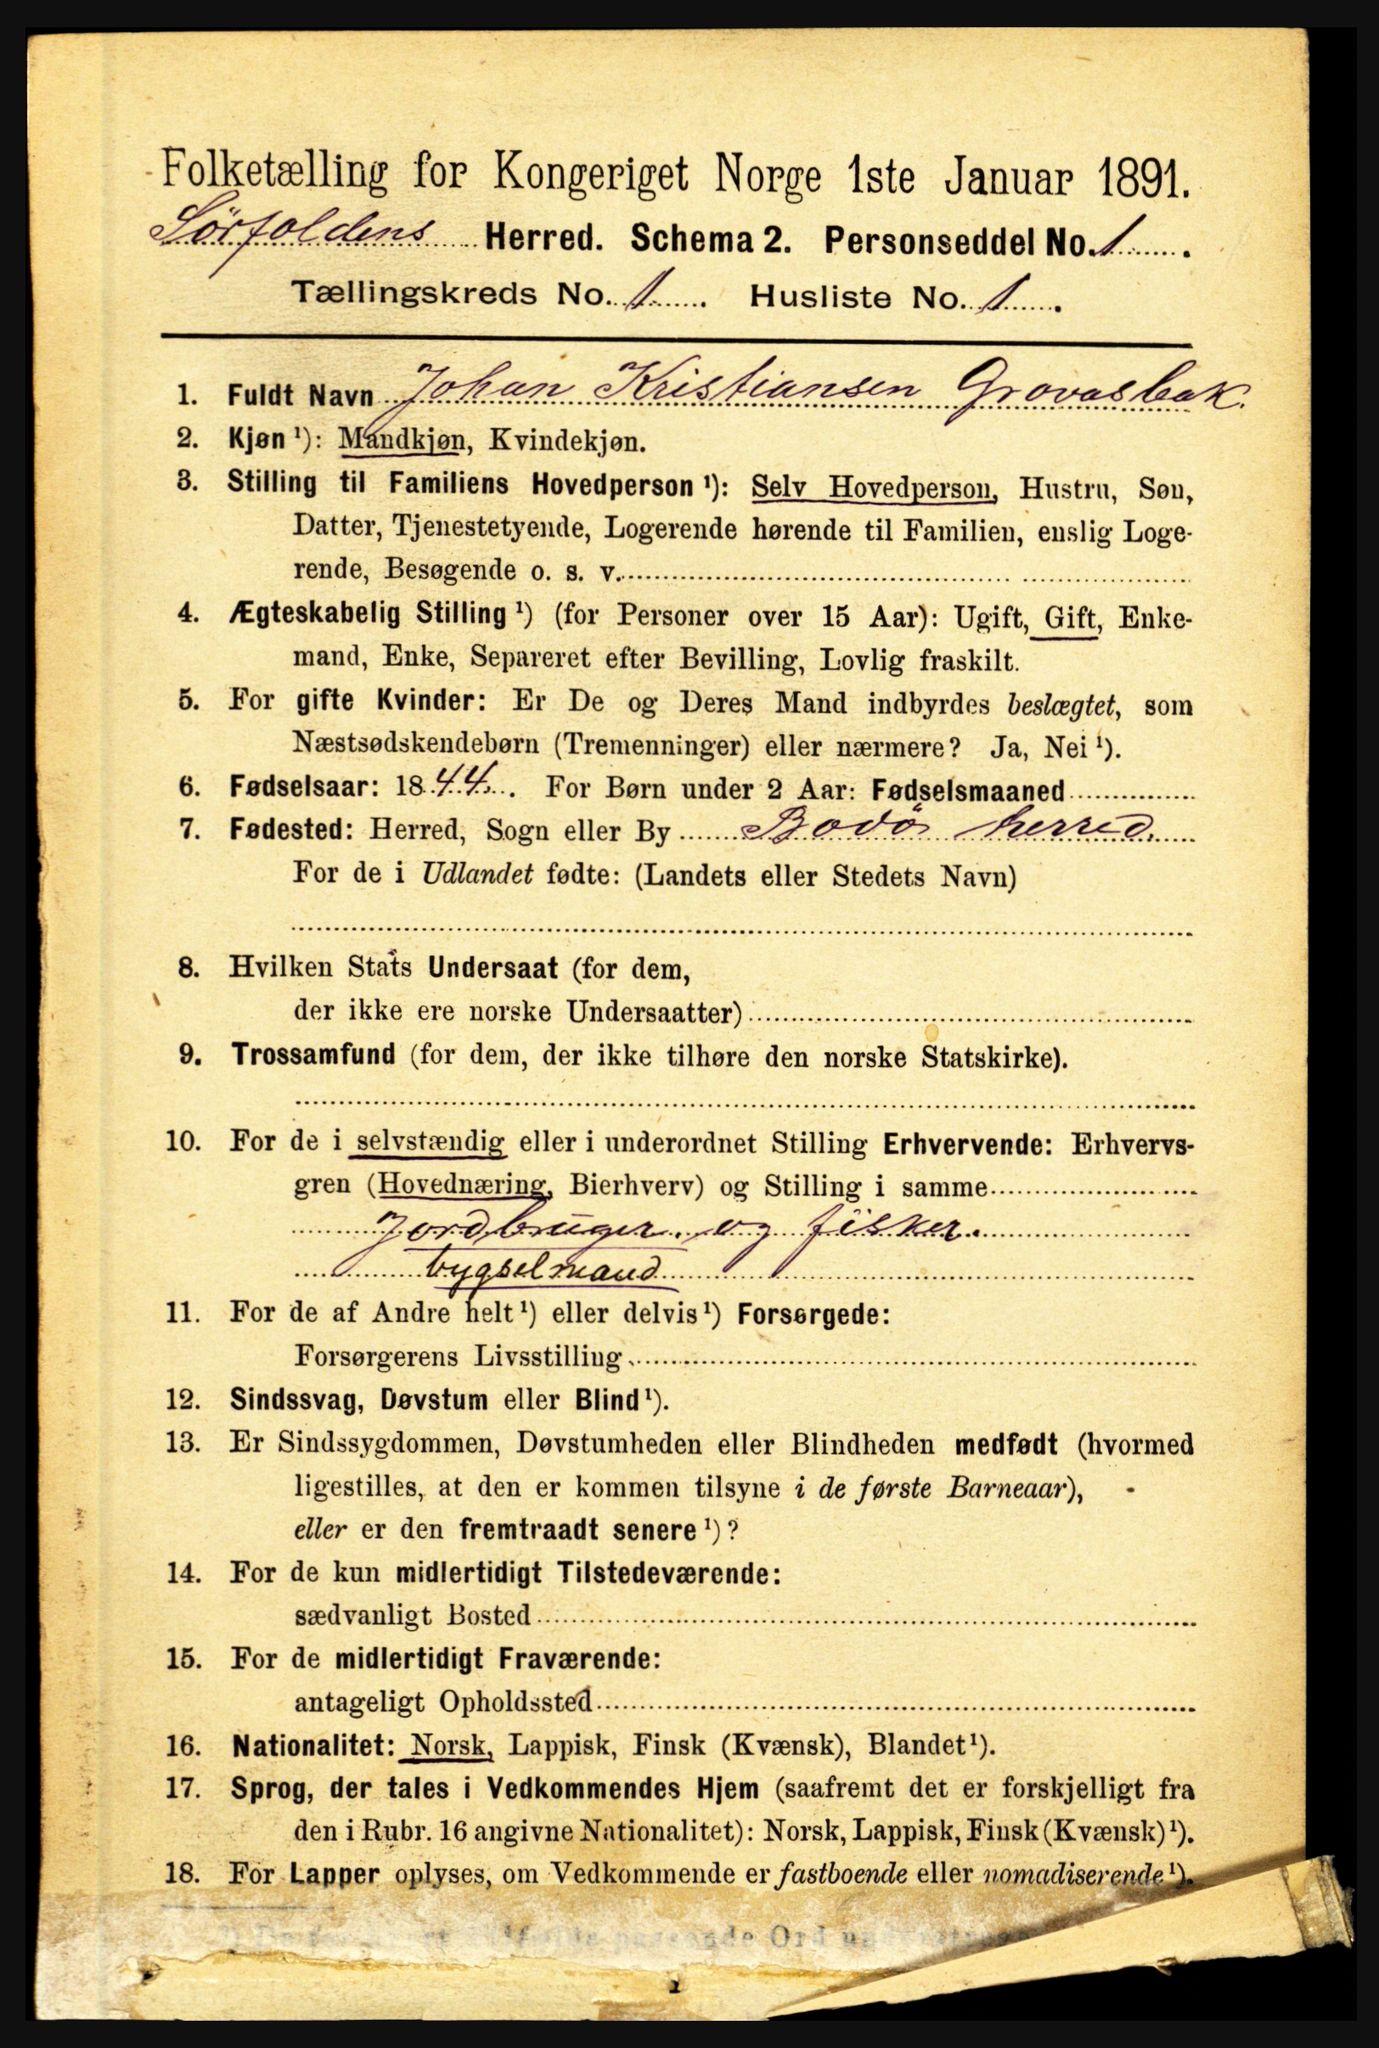 Folketælling for Kongeriget Norge 1ste Januar 1891.
Sørfoldens Herred. Schema 2. Personseddel No. 1.
Tællingskreds No. 1. Husliste No. 1.
1. Fuldt Navn Johan Kristiansen Grovasbak.
2. Kjøn ¹): Mandkjøn, Kvindekjøn.
3. Stilling til Familiens Hovedperson ¹): Selv Hovedperson, Hustru, Søn,
Datter, Tjenestetyende, Logerende hørende til Familien, enslig Loge-
rende, Besøgende o. s. v.
4. Ægteskabelig Stilling ¹) (for Personer over 15 Aar): Ugift, Gift, Enke-
mand, Enke, Separeret efter Bevilling, Lovlig fraskilt.
5. For gifte Kvinder: Er De og Deres Mand indbyrdes beslægtet, som
Næstsødskendebørn (Tremenninger) eller nærmere? Ja, Nei ¹).
6. Fødselsaar: 1844. For Børn under 2 Aar: Fødselsmaaned
7. Fødested: Herred, Sogn eller By Bodø herred.
For de i Udlandet fødte: (Landets eller Stedets Navn)
8. Hvilken Stats Undersaat (for dem,
der ikke ere norske Undersaatter)
9. Trossamfund (for dem, der ikke tilhøre den norske Statskirke).
10. For de i selvstændig eller i underordnet Stilling Erhvervende: Erhvervs-
gren (Hovednæring, Bierhverv) og Stilling i samme
Jordbruger. og fisker.
bygselmand
11. For de af Andre helt ¹) eller delvis ¹) Forsørgede:
Forsørgerens Livsstilling
12. Sindssvag, Døvstum eller Blind ¹).
13. Er Sindssygdommen, Døvstumheden eller Blindheden medfødt (hvormed
ligestilles, at den er kommen tilsyne i de første Barneaar),
eller er den fremtraadt senere ¹)?
14. For de kun midlertidigt Tilstedeværende:
sædvanligt Bosted
15. For de midlertidigt Fraværende:
antageligt Opholdssted
16. Nationalitet: Norsk, Lappisk, Finsk (Kvænsk), Blandet ¹).
17. Sprog, der tales i Vedkommendes Hjem (saafremt det er forskjelligt fra
den i Rubr. 16 angivne Nationalitet): Norsk, Lappisk, Finsk (Kvænsk) ¹).
18. For Lapper oplyses, om Vedkommende er fastboende eller nomadiserende ¹).
passende Ord